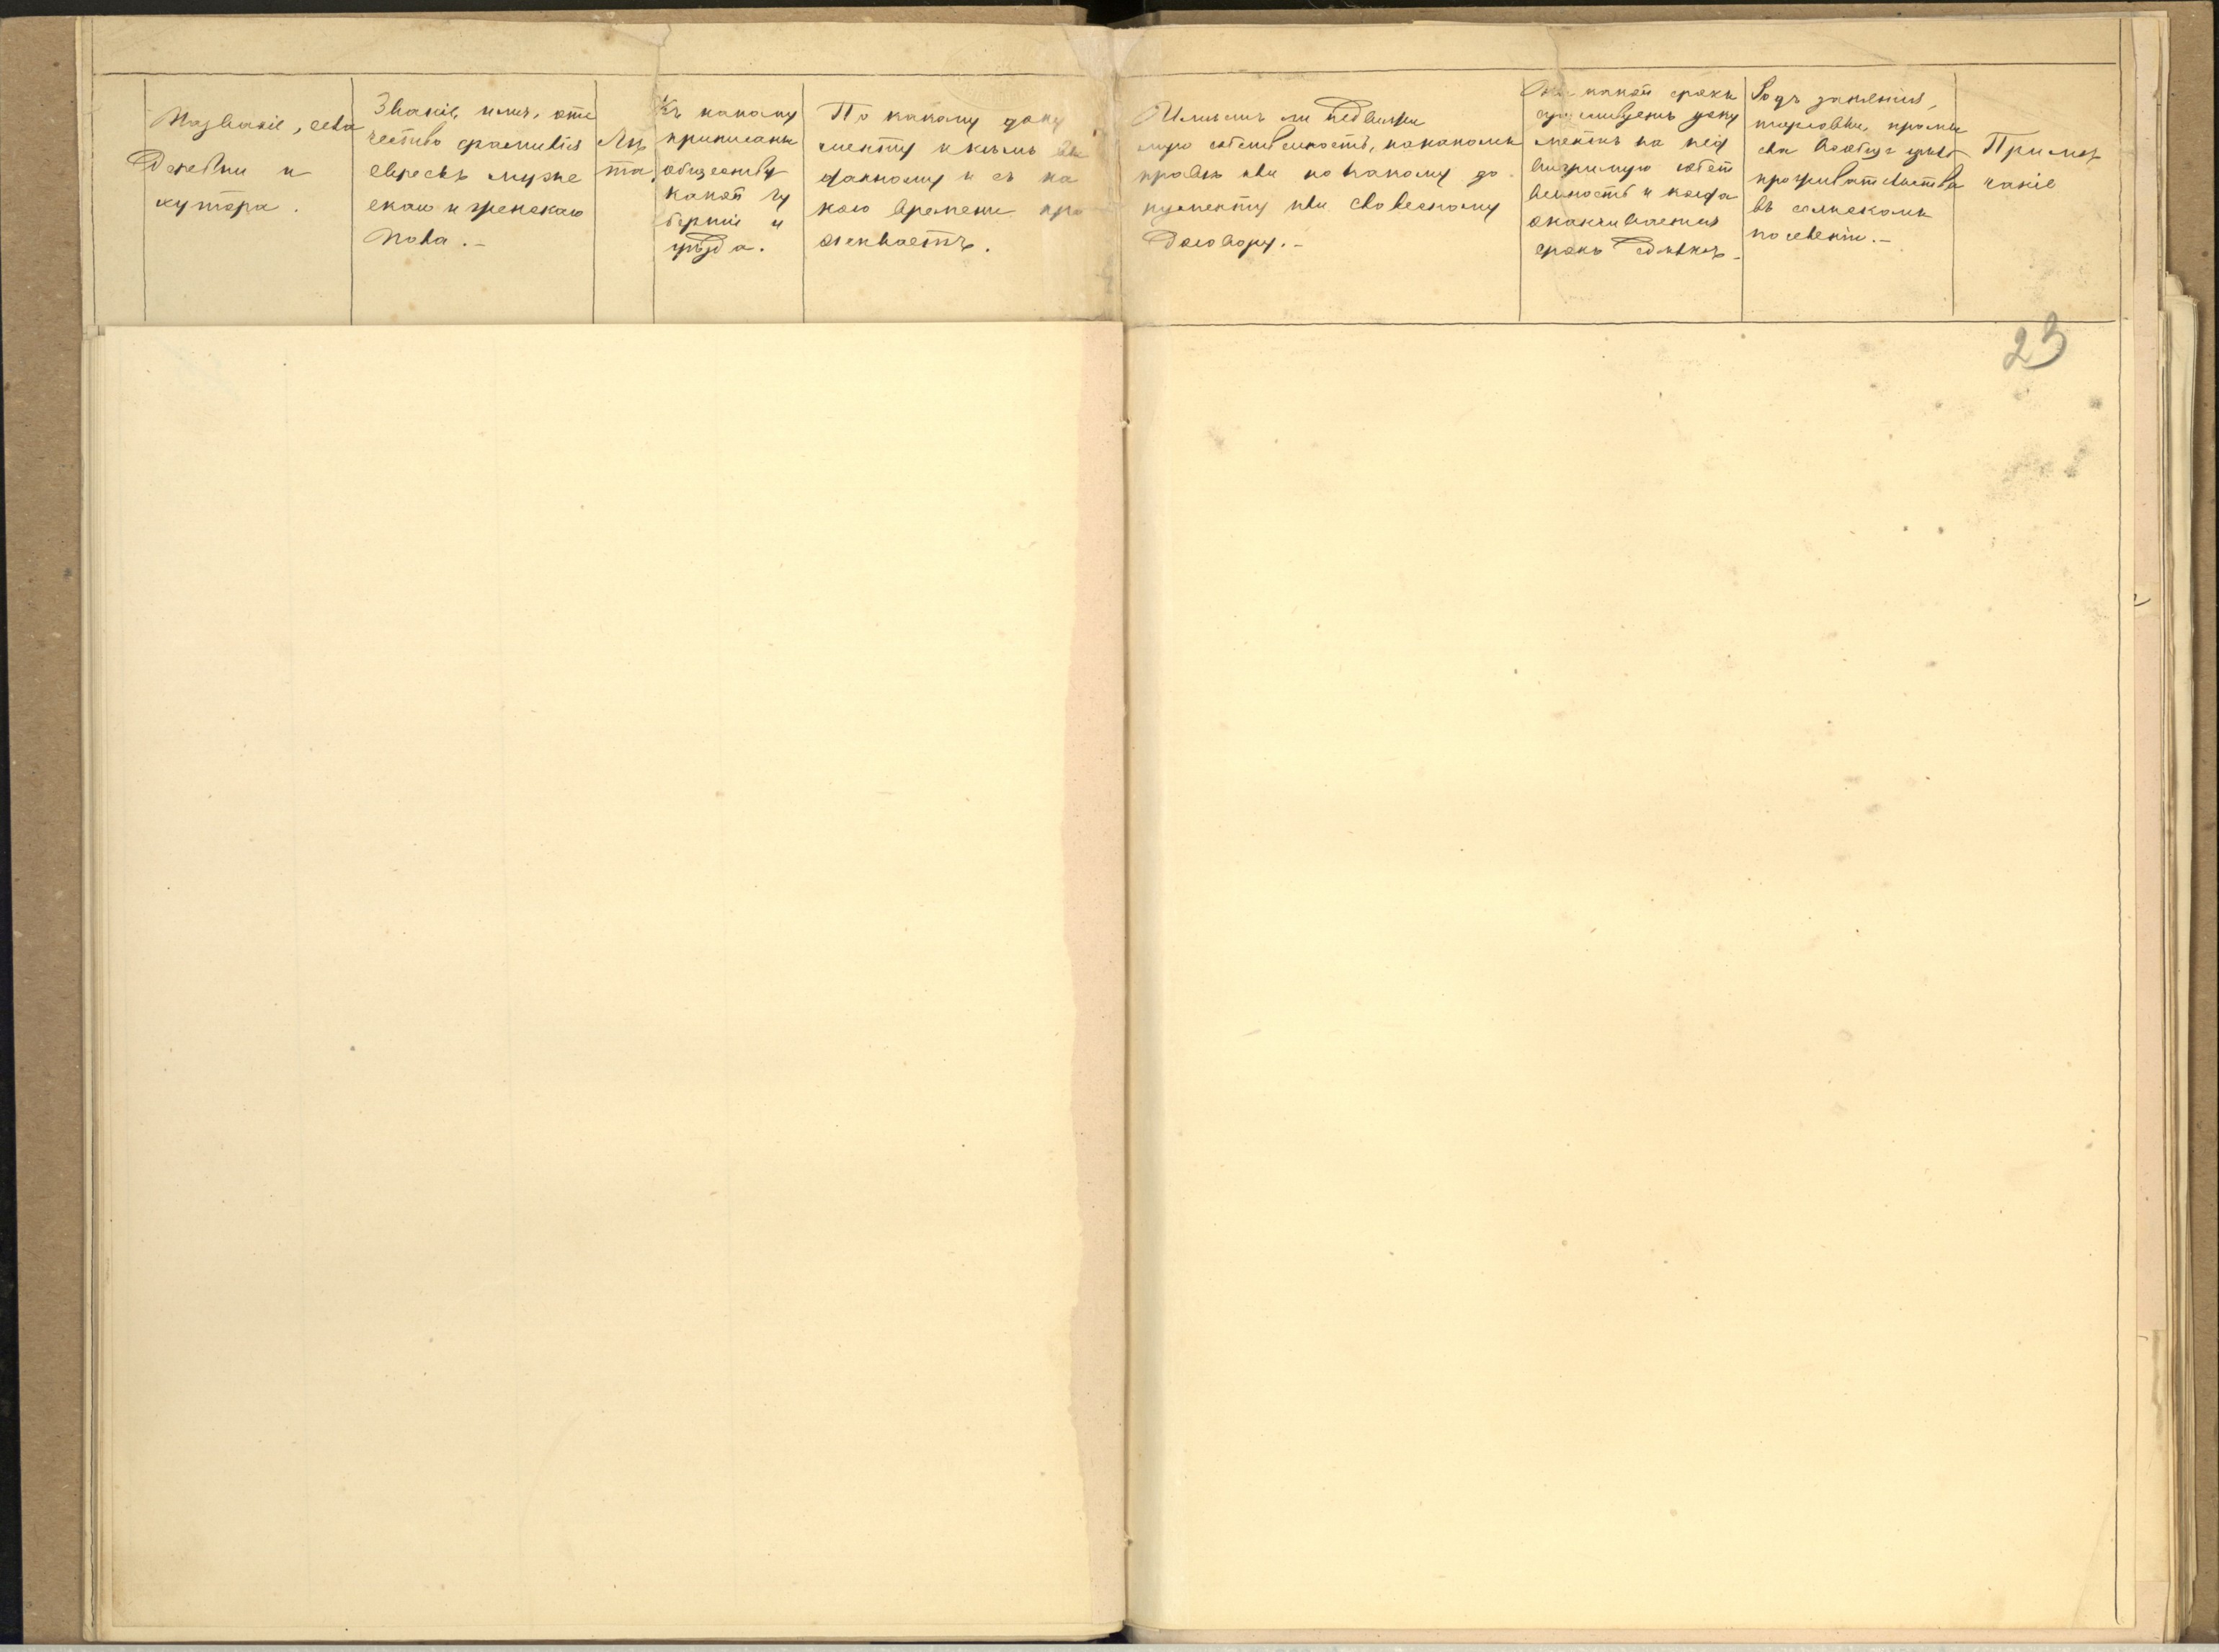 Названіе, села
Деревни и
хутора.
Званіе, имя, оте
чество фамилія
евреевъ муже
скаго и женскаго
пола.-
Лѣ
та.
Къ какому
приписаны
обществу
какой гу
берніи и
уѣзда.
По какому доку
менту и кѣмъ вы
данному и съ ка
кого времени про
живаетъ.
Имѣетъ ли недвижи
мую собственность, на какомъ
правѣ или по какому до
кументу или словесному
договору.-
На какой срокъ
документъ на нед
вижимую собст
венность и когда
оканчивается
срокъ
Родъ занятія,
торговли, промы
сла вообще цѣль
проживательства
въ сельскомъ
поселеніи.-
Примѣ
чаніе
23